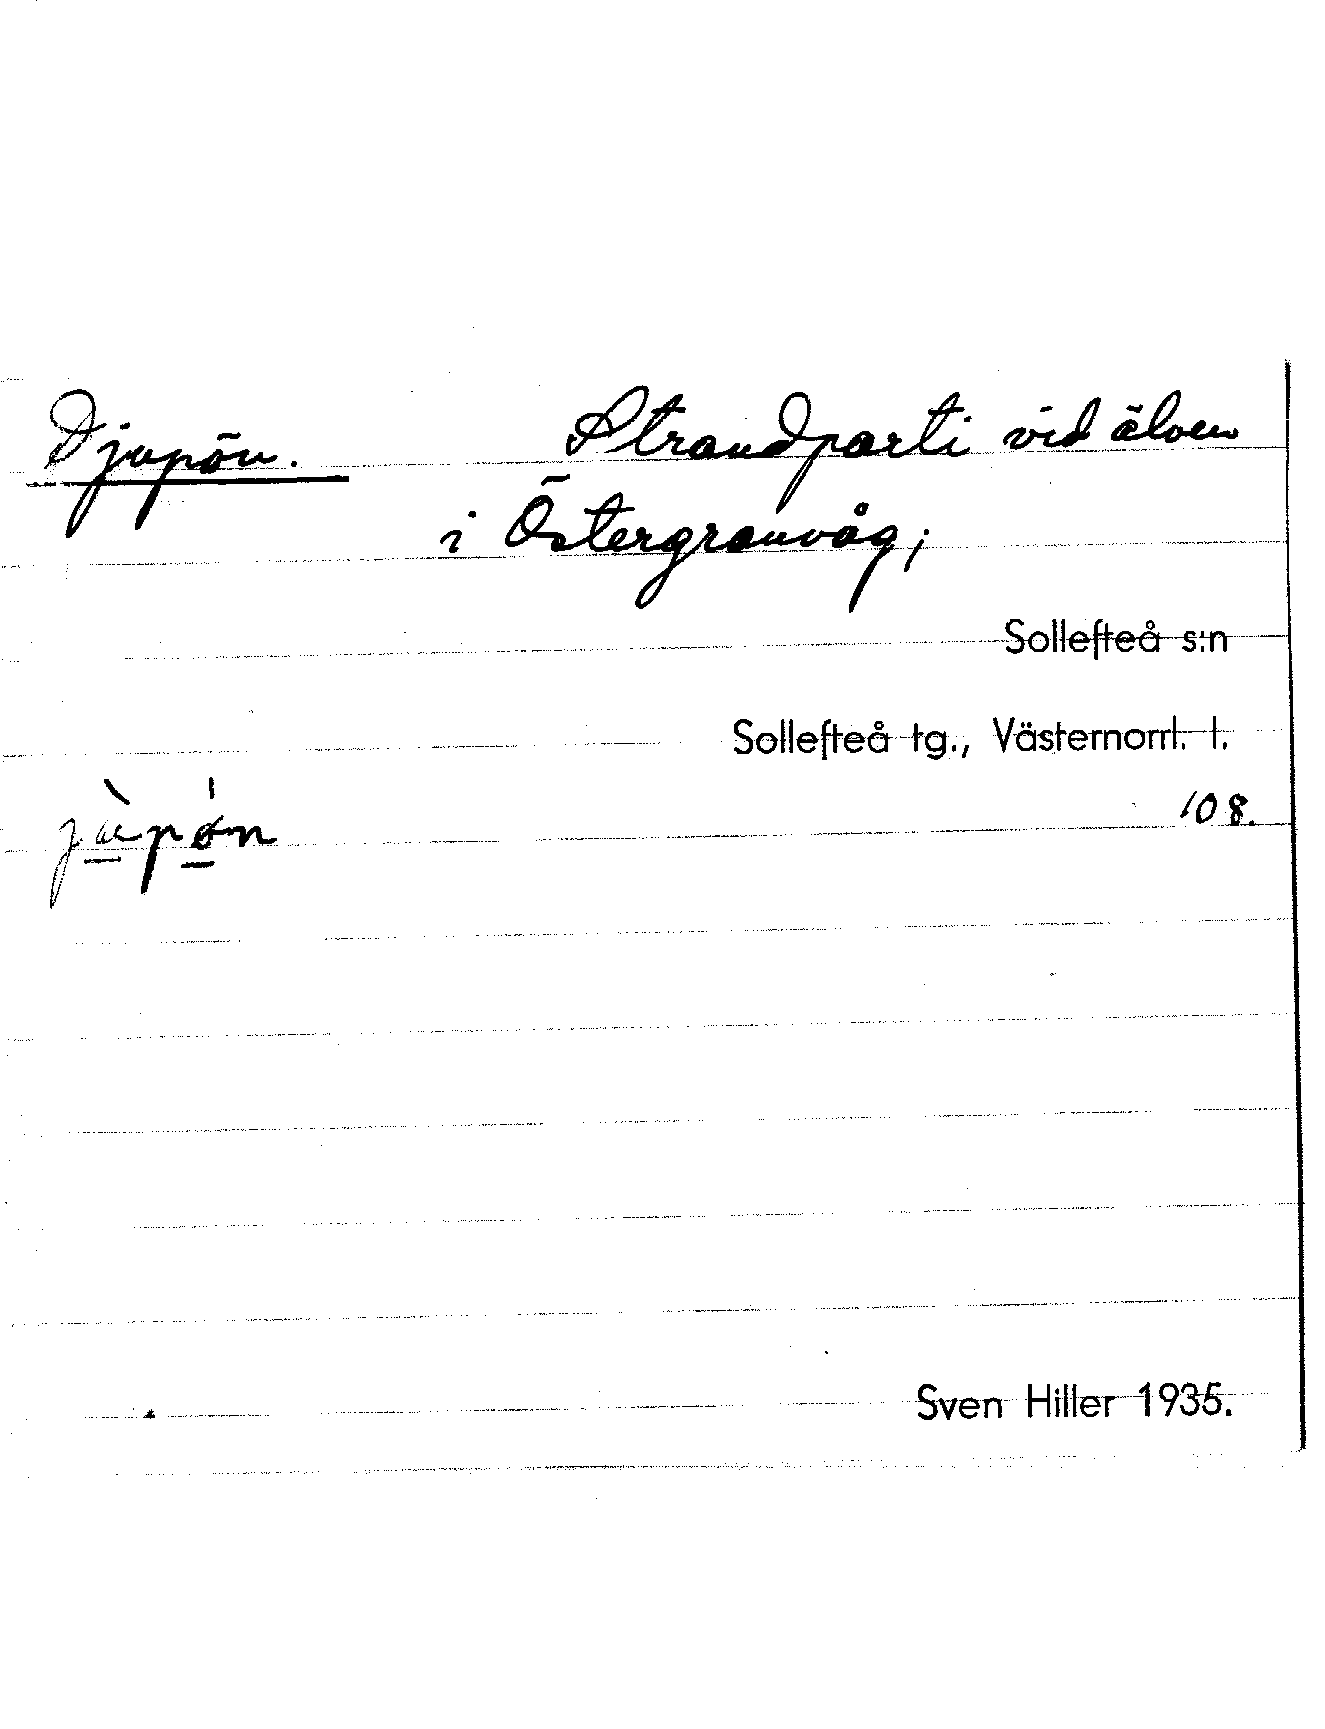 Djupön. Strandparti vid älven
i Östergranvåg;
Sollefteå s:n
Sollefteå tg., Västernorrl. l.
108.
Sven Hiller 1935.